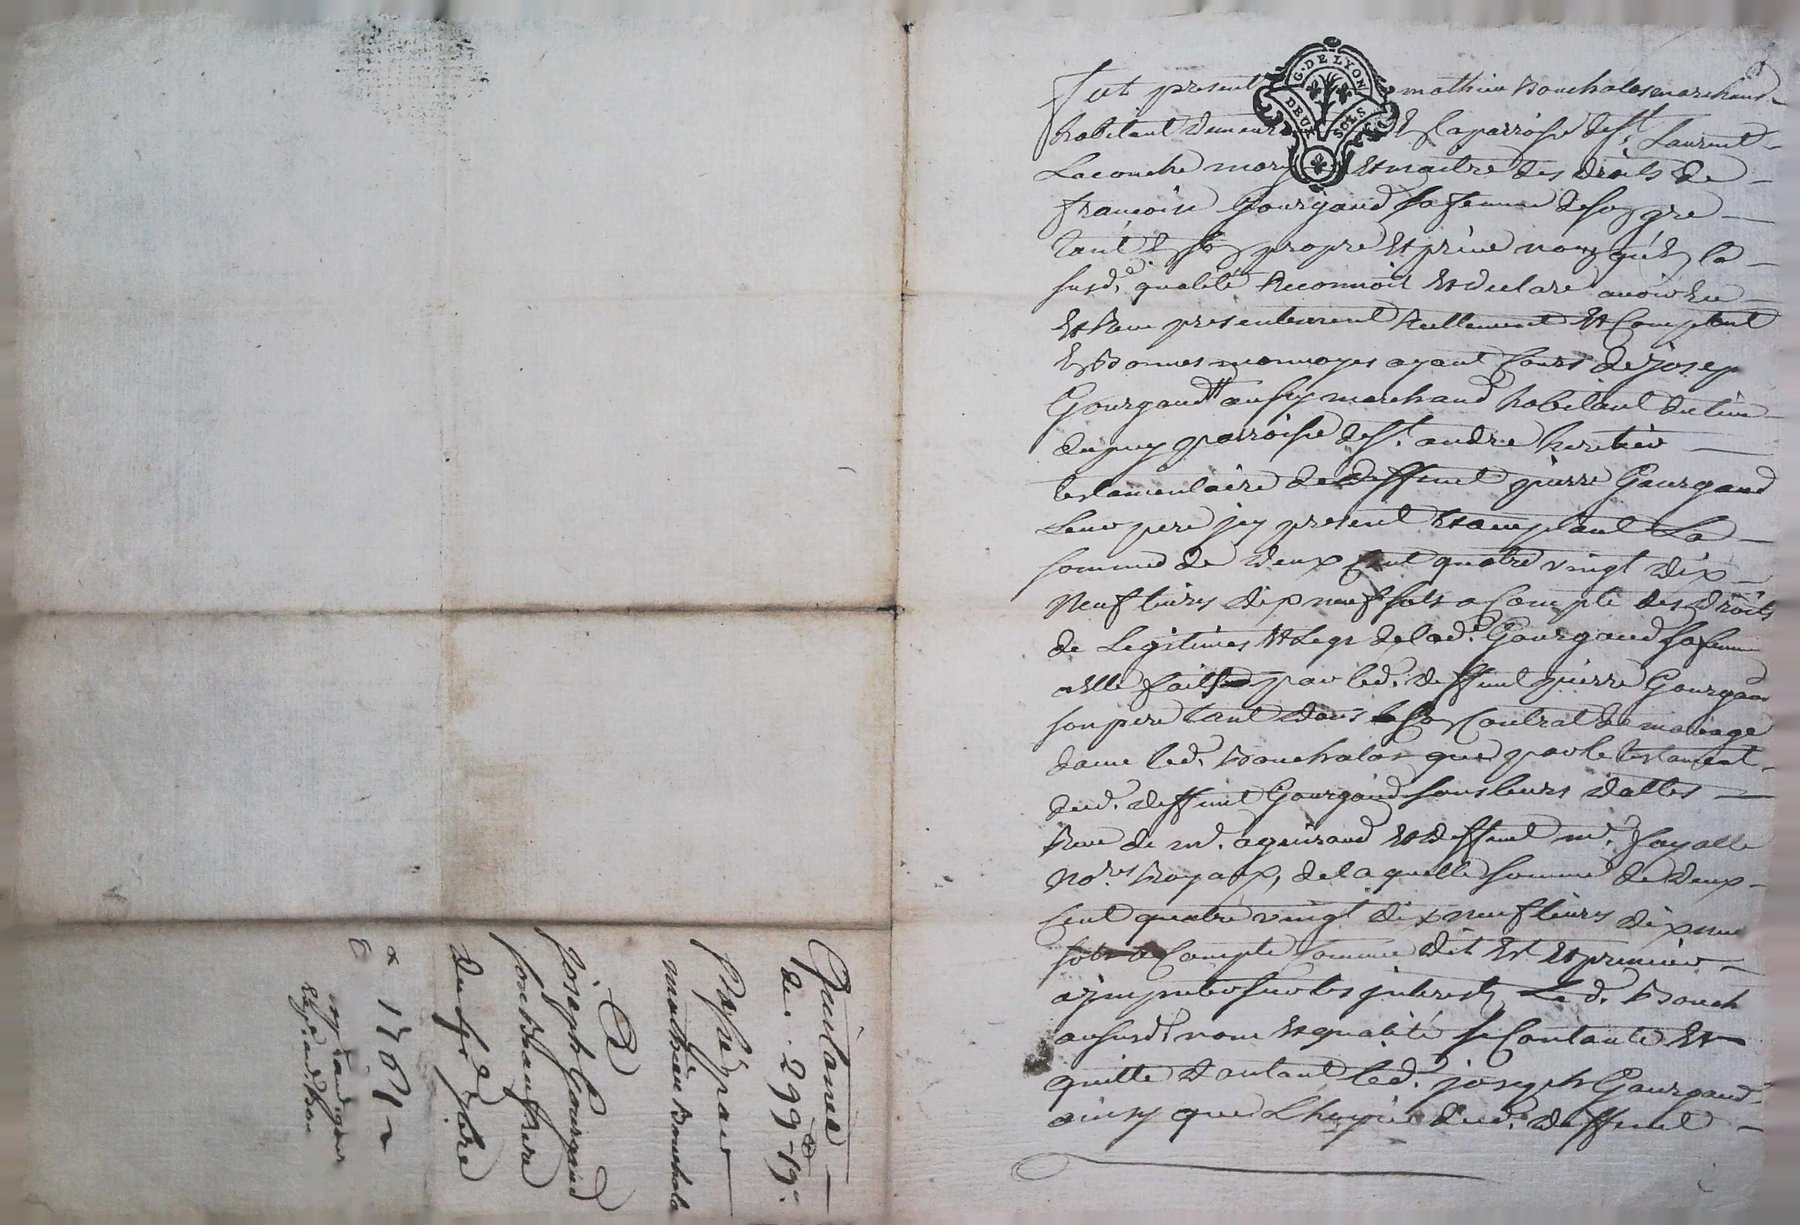 G. DE LYON
DEUX SOLS
Fut present mathieu Bouchalas marchand
habitant demeurant En la parroisse de St. Laurent
Laconche mary Et maitre des droits de
francoise Gourgaud sa femme de son gre
tant En son propre Et privé nom qu'En la
susde. qualité Reconnoit Et declare avoir Eu
Et Reçu presentement Reellement Et Comptant
En Bonnes monnoyes ayant Cours de josep
Gourgaud aussy marchand habitant du lieu
parroisse de St. andre heritier
testamentaire de deffunt pierre Gourgaud
Leur pere jcy present Et acceptant La
somme de deux Cent quatre vingt dix
neuf livres dix neuf sols a Compte des droits
de Legitimes Et Legs de lade. Gourgaud sa femme
a Elle faits par led. deffunt pierre Gourgaud
son pere tant dans son Contrat de mariage
avec led. Bouchalas que par le testament
dud. deffunt Gourgaud sous leurs dattes
Reçu de me. aguiraud Et deffunt me. fayolle
nores. Royaux, de laquelle somme de deux
Cent quatre vingt dix neuf livres dix neuf
sols a Compte Comme dit Est Et premier
a jmputer sur les jnterests Le d. Bouch
au susd. nom Et qualité se Contante Et
quitte d'autant led. joseph Gourgaud
ainsy que L'hoyrie dud. deffunt
Quitance
de. 299tt-19s.
Passé par
mathieu Bouchala
A
joseph Gourgaud
son Beaufrere
du 6e. 7bre
1761